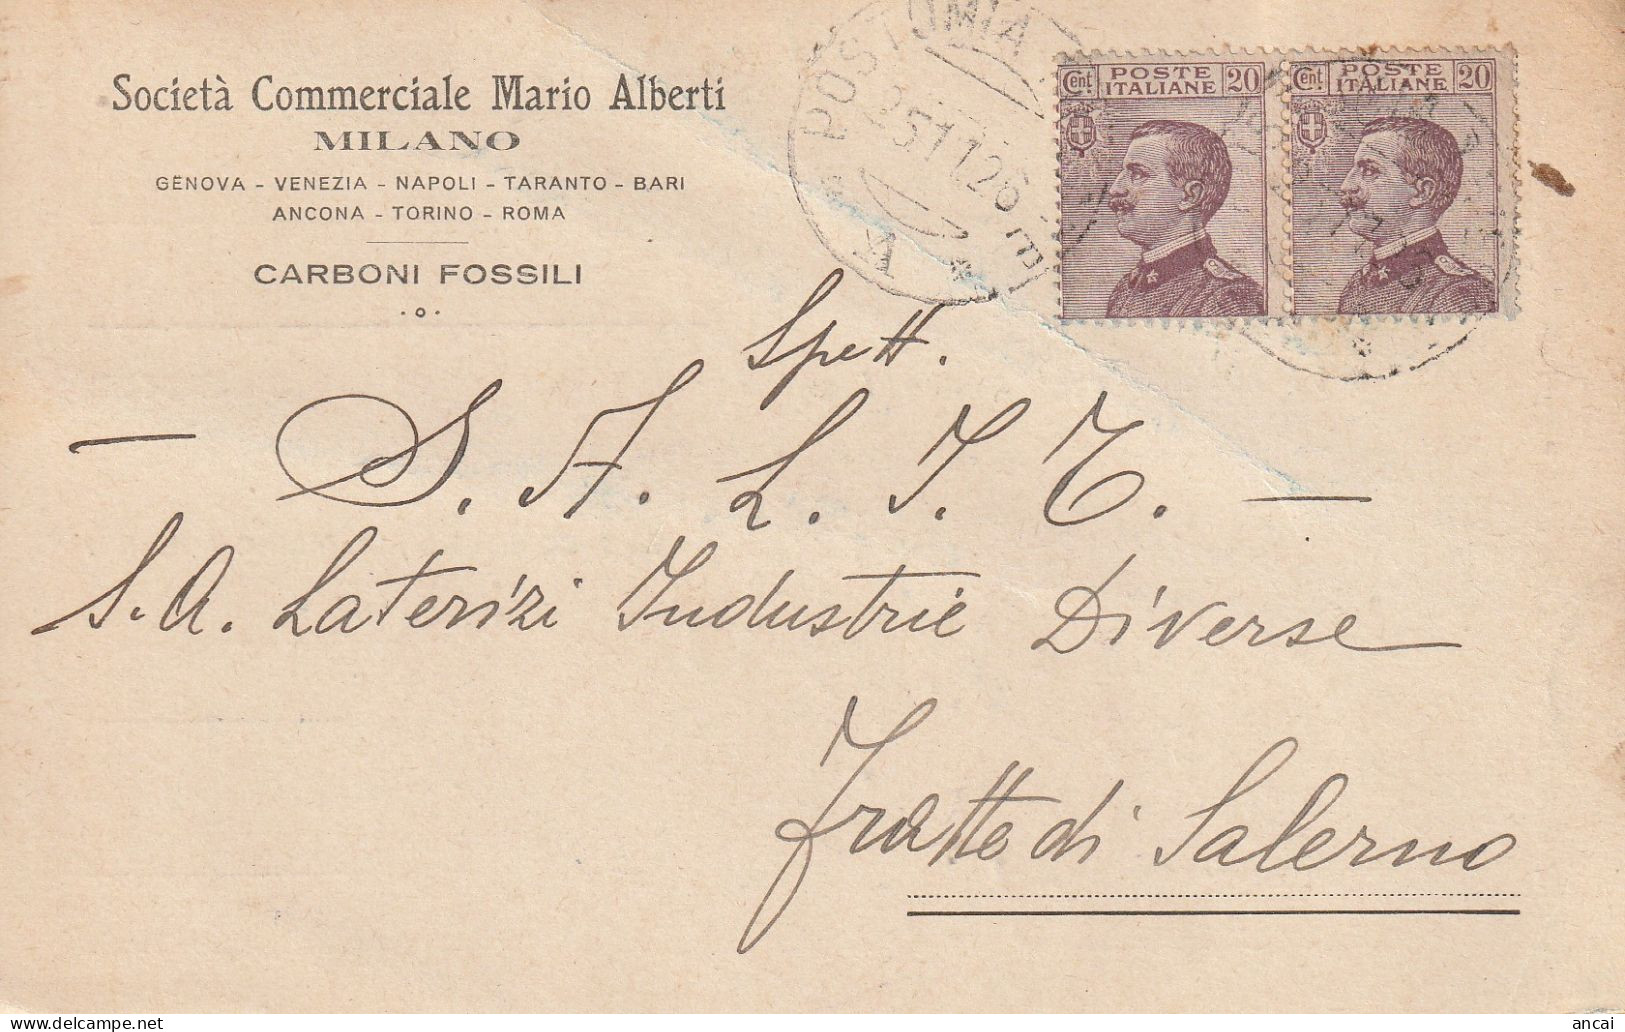 Società Commerciale Mario Alberti
MILANO
GENOVA - VENEZIA - NAPOLI - TARANTO - BARI
ANCONA - TORINO - ROMA
CARBONI FOSSILI
POSTUMIA
25 11 26
Cent POSTE ITALIANE 20
Cent POSTE ITALIANE 20
Spett.
— S. A. L. I. D. —
S. A. Laterizi Industrie Diverse
Fratte di Salerno
ancai